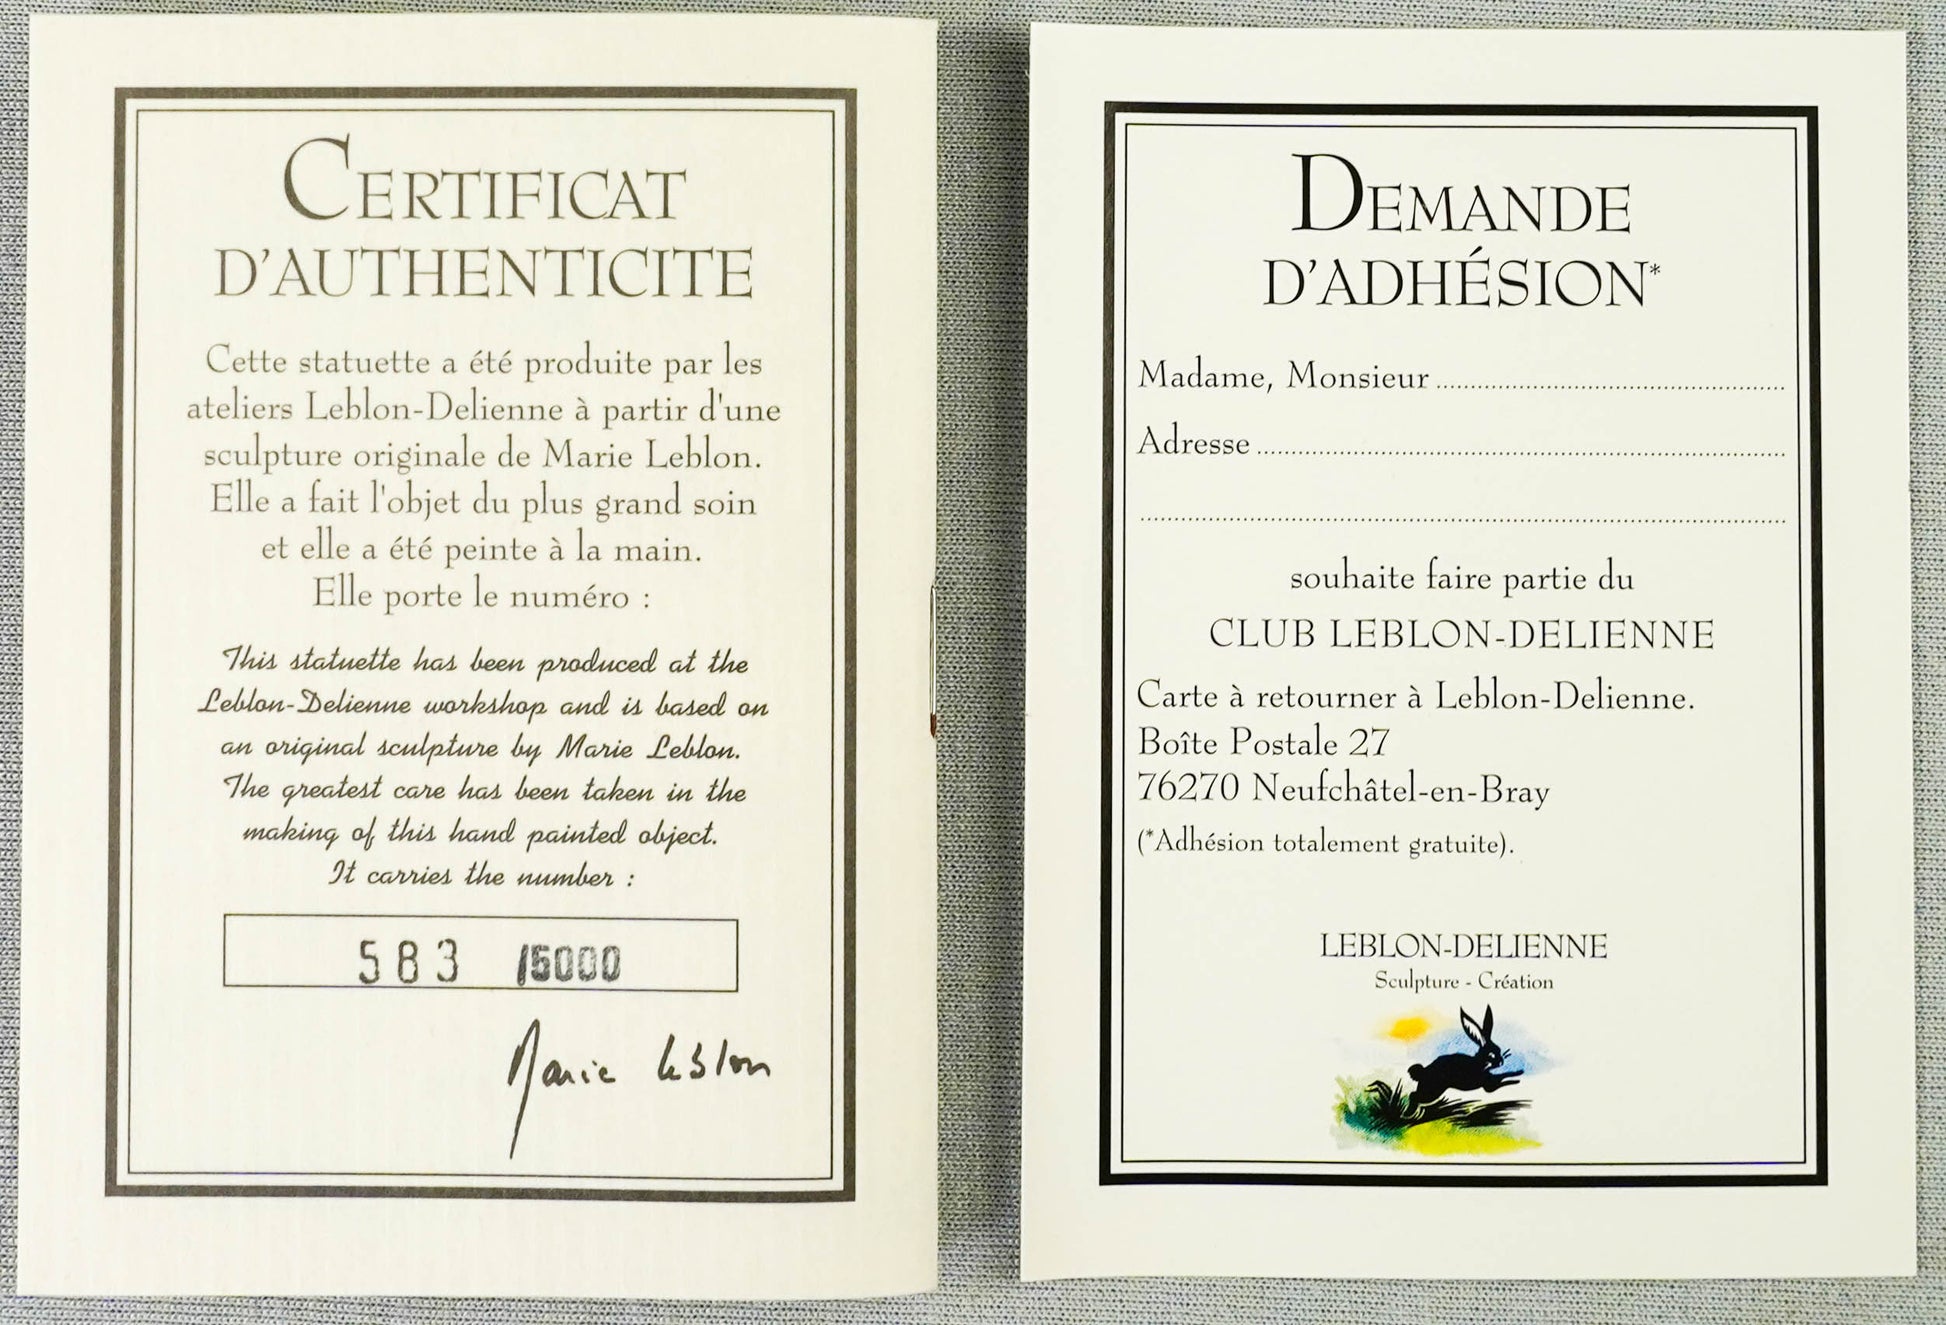 CERTIFICAT
D'AUTHENTICITE
Cette statuette a été produite par les
ateliers Leblon-Delienne à partir d'une
sculpture originale de Marie Leblon.
Elle a fait l'objet du plus grand soin
et elle a été peinte à la main.
Elle porte le numéro :
This statuette has been produced at the
Leblon-Delienne workshop and is based on
an original sculpture by Marie Leblon.
The greatest care has been taken in the
making of this hand painted object.
It carries the number :
583 /5000
Marie Leblon
DEMANDE
D'ADHÉSION*
Madame, Monsieur
Adresse
souhaite faire partie du
CLUB LEBLON-DELIENNE
Carte à retourner à Leblon-Delienne.
Boîte Postale 27
76270 Neufchâtel-en-Bray
(*Adhésion totalement gratuite).
LEBLON-DELIENNE
Sculpture - Création